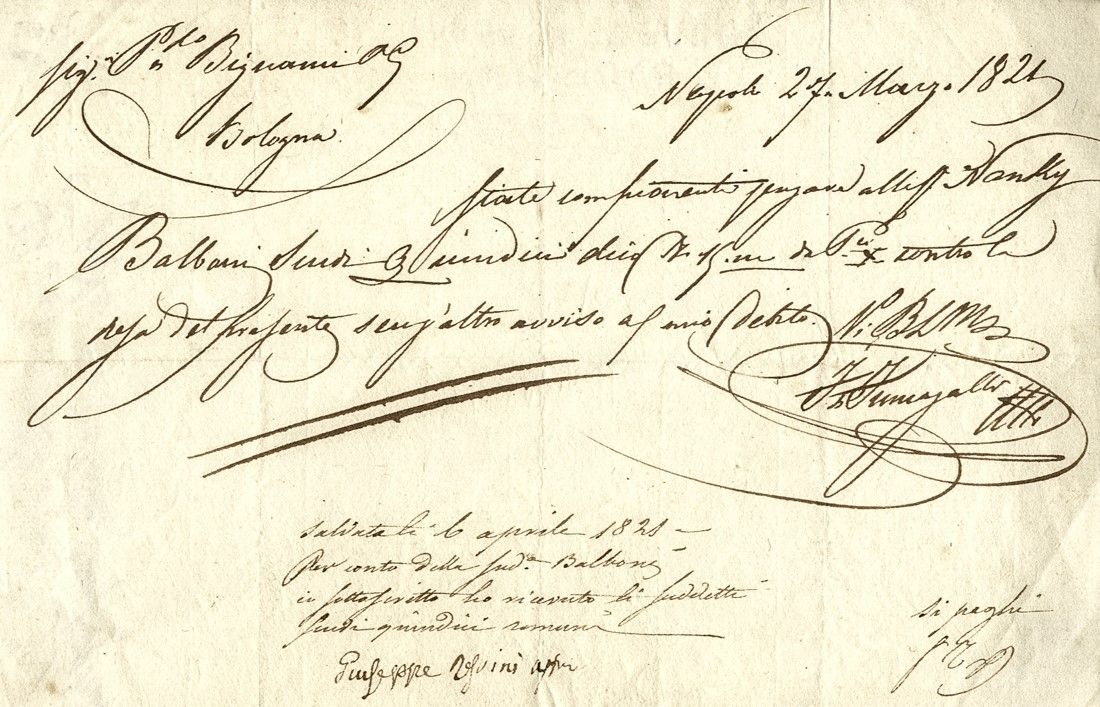 Sig.r P. Bignami
Napoli 27 Marzo 1821
Bologna
state compiacenti pagare alla
Balboni Scudi Quindici dico da contro la
resa del presente senz'altro avviso al mio debito.
Fumagalli
saldata li 6 aprile 1821
Per conto della sud.a Balboni
io sottoscritto ho ricevuto li suddetti
scudi quindici romani
si paghi
Giuseppe